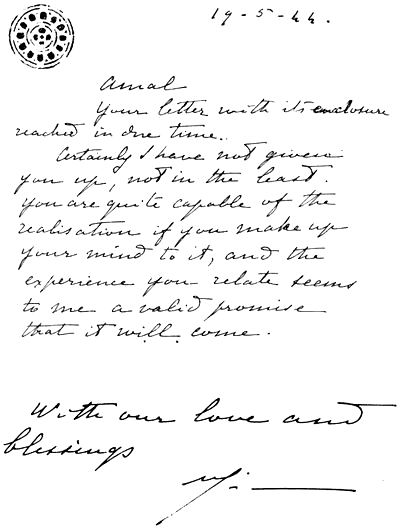 19-5-44.
Amal
Your letter with its enclosure
reached in due time.
Certainly I have not given
you up, not in the least.
You are quite capable of the
realisation if you make up
your mind to it, and the
experience you relate seems
to me a valid promise
that it will come.
With our love and
blessings